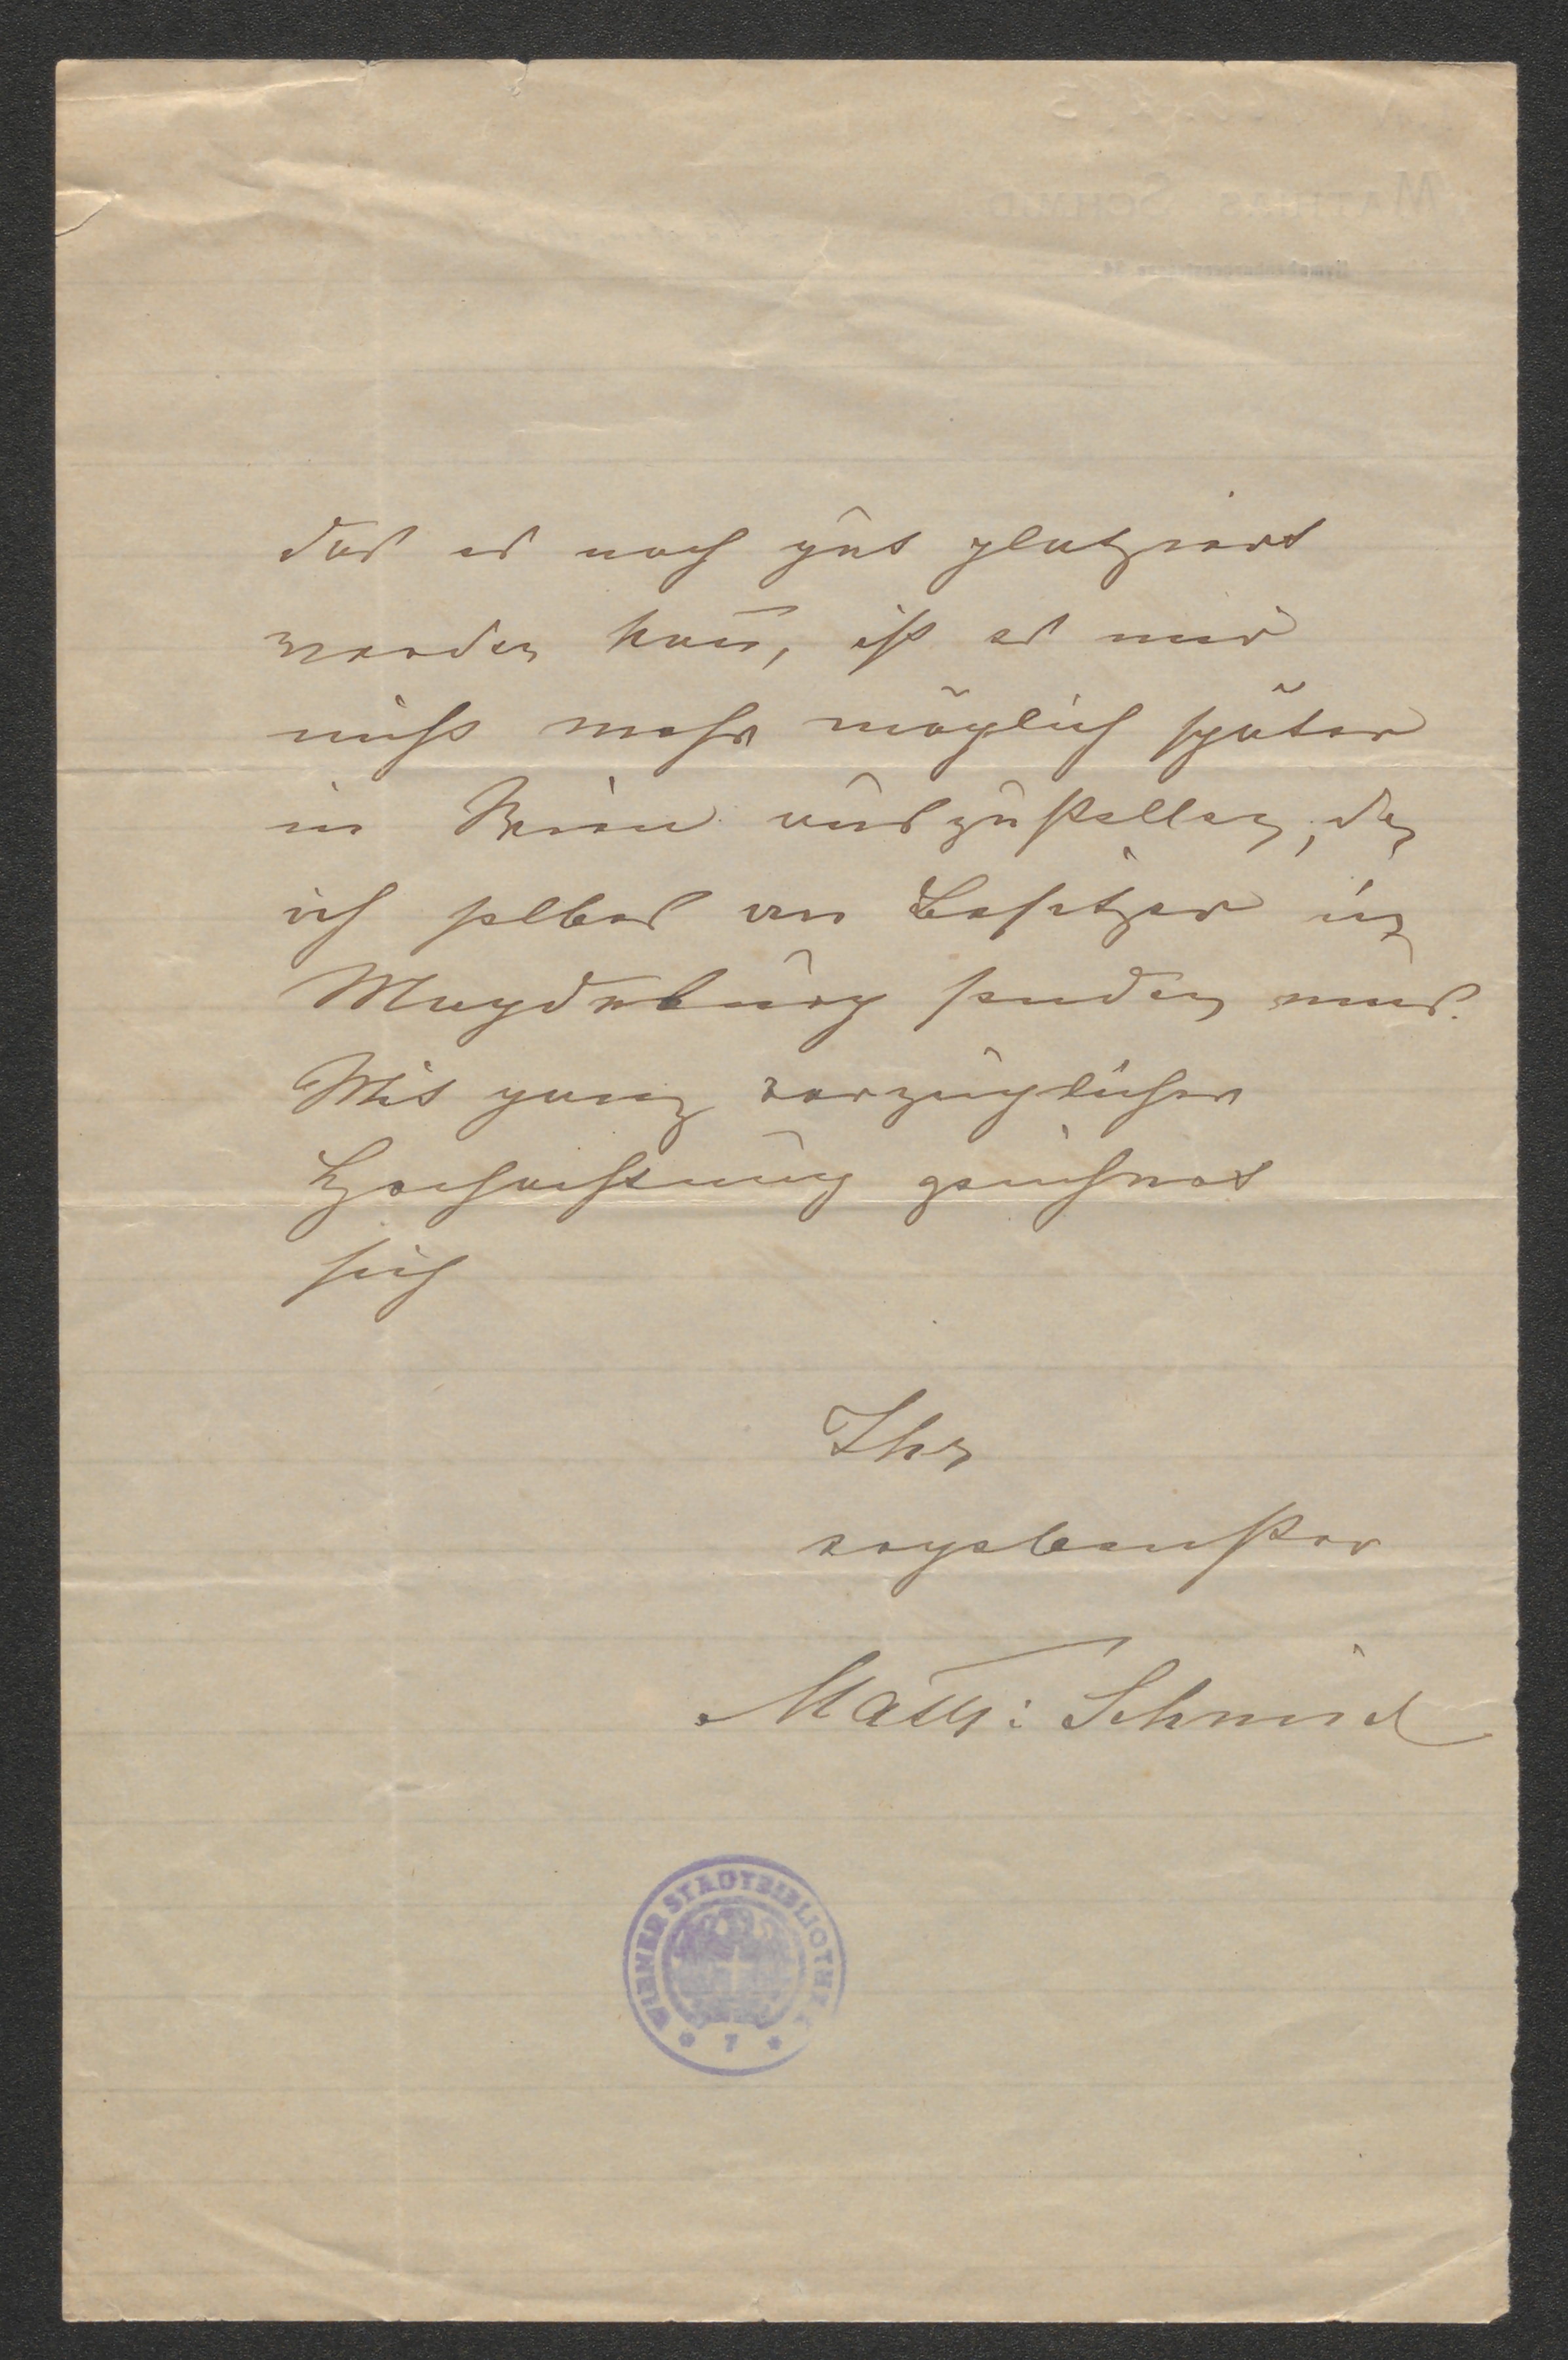 das es noch gut platziert
werden kann̄, ist es mir
nicht mehr möglich später
in Wien auszustellen, da
ich selbes an Besitzer in
Magdeburg senden muß.
Mit ganz vorzüglicher
Hochachtung zeichnet
sich
Ihr
ergebenster
Math: Schmid
WIENER STADTBIBLIOTHEK
* 7 *